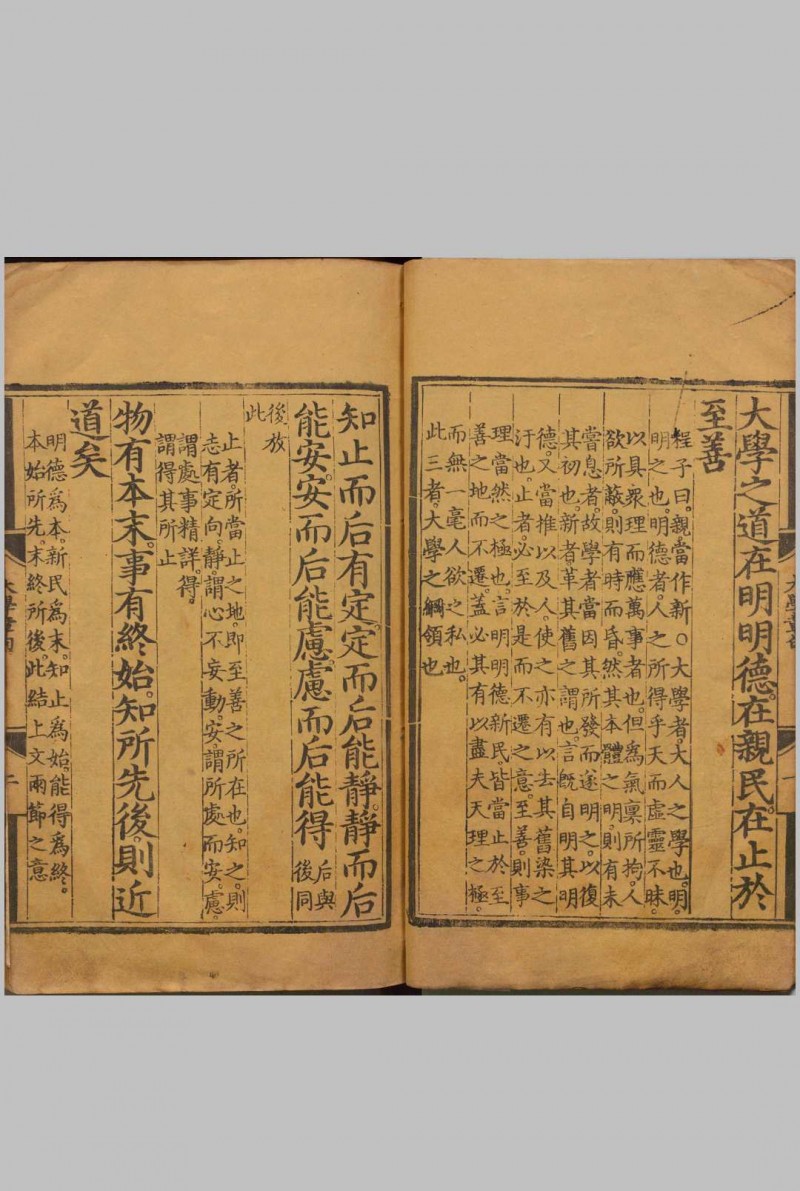 大學之道在明明德。在親民。在止於
至善
程子曰。親當作新。○大學者。大人之學也。明。
明之也。明德者。人之所得乎天而虛靈不昧。
以具衆理而應萬事者也。但爲氣稟所拘。人
欲所蔽。則有時而昏。然其本體之明。則有未
嘗息者。故學者當因其所發而遂明之。以復
其初也。新者革其舊之謂也。言旣自明其明
德。又當推以及人。使之亦有以去其舊染之
汙也。止者。必至於是而不遷之意。至善。則事
理當然之極也。言明明德新民。皆當止於至
善之地而不遷。葢必其有以盡夫天理之極。
而無一毫人欲之私也。
此三者。大學之綱領也
知止而后有定。定而后能靜。靜而后
能安。安而后能慮。慮而后能得
后與
後同
後放
此
止者所當止之地。即至善之所在也。知之。則
志有定向。靜。謂心不妄動。安。謂所處而安。慮。
謂處事精詳。得。
謂得其所止
物有本末。事有終始。知所先後。則近
道矣
明德爲本。新民爲末。知止爲始。能得爲終。
本始所先。末終所後。此結上文兩節之意